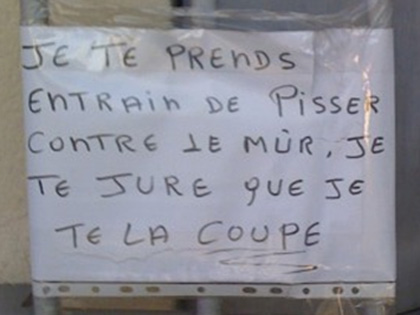 JE TE PRENDS
ENTRAIN DE PISSER
CONTRE LE MÛR, JE
TE JURE QUE JE
TE LA COUPE